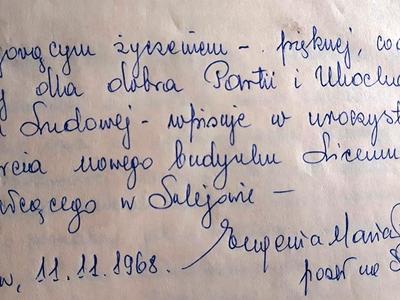 jowącym życzeniem - pięknej, co
y dla dobra Partii i Ukocha
Ludowej - wpisuje w uroczyst
rcia nowego budynku Liceum
łcącego w Sulejowie -
Eugenia Maria
w, 11.11.1968.
poseł na S